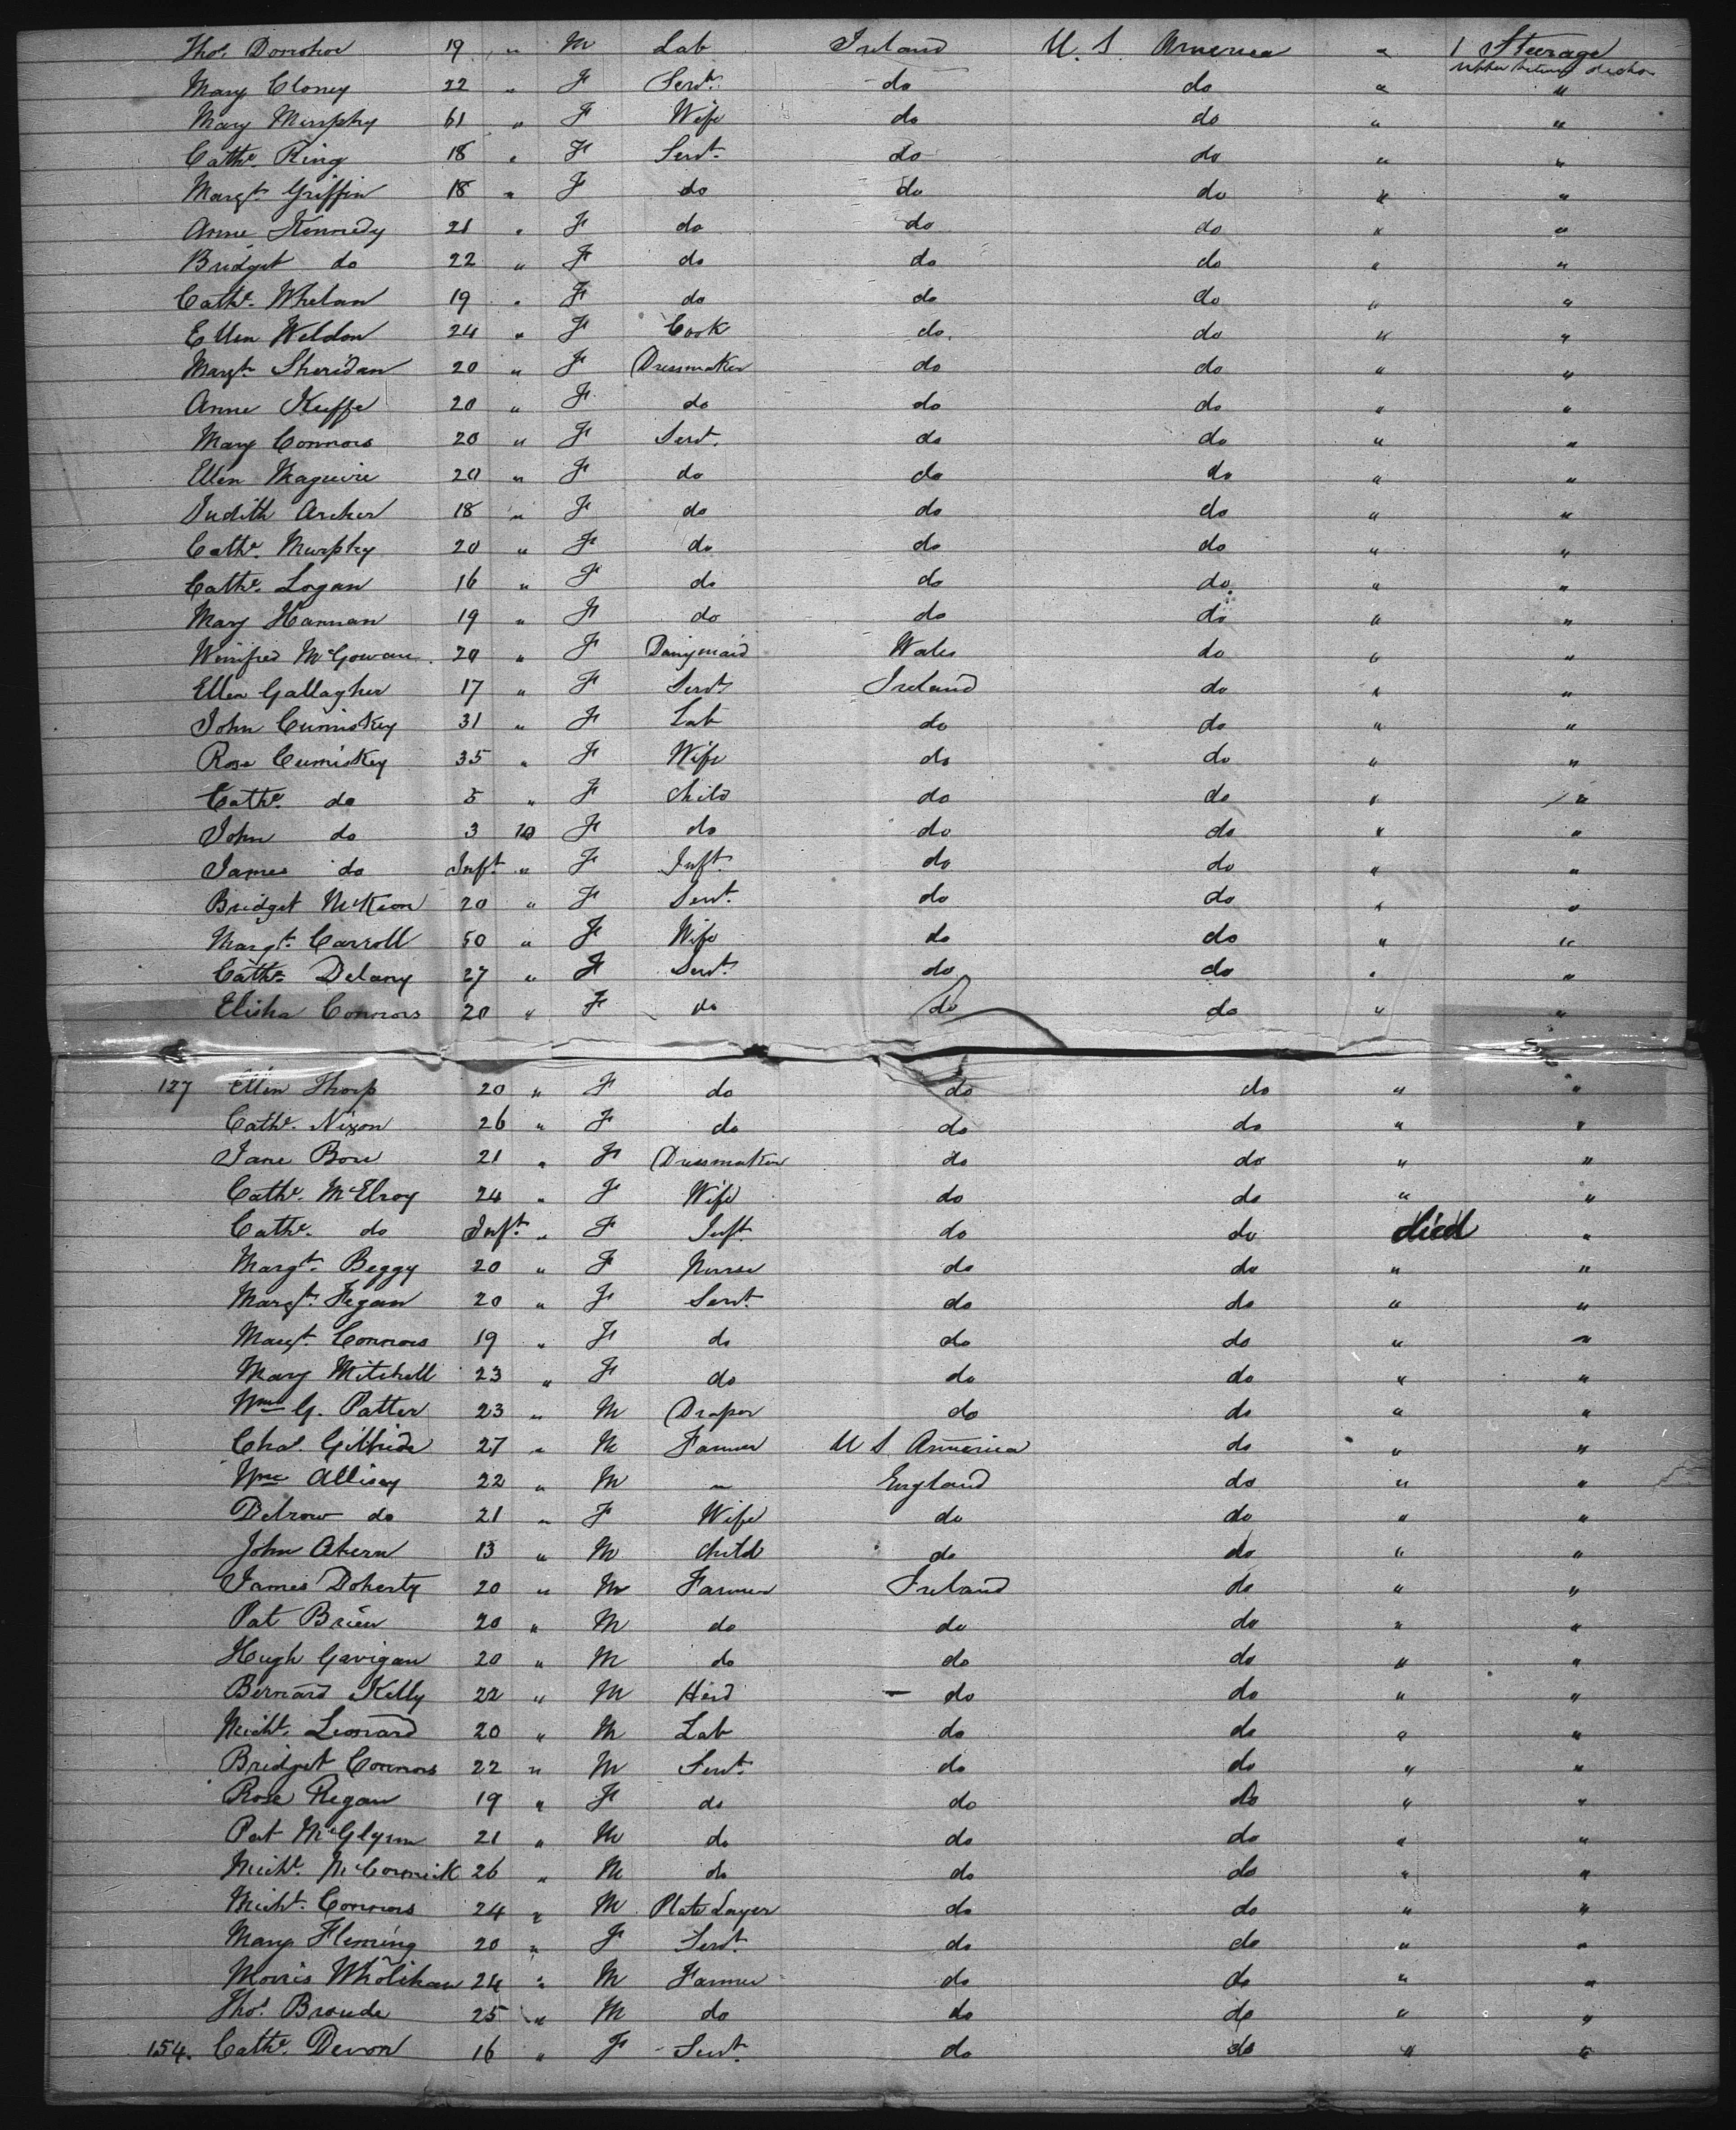 Thos. Donohoe 19 " M Lab Ireland U. S. America " 1 Steerage
upper between decks
Mary Cloney 22 " F Servt. do do " "
Mary Murphy 61 " F Wife do do " "
Cathe. King 18 " F Servt. do do " "
Margt. Griffin 18 " F do do do " "
Anne Kennedy 21 " F do do do " "
Bridget do 22 " F do do do " "
Cathe. Whelan 19 " F do do do " "
Ellen Weldon 24 " F Cook do do " "
Margt. Sheridan 20 " F Dressmaker do do " "
Anne Keeffe 20 " F do do do " "
Mary Connors 20 " F Servt. do do " "
Ellen Maguire 20 " F do do do " "
Judith Archer 18 " F do do do " "
Cathe. Murphy 20 " F do do do " "
Cathe. Logan 16 " F do do do " "
Mary Hannan 19 " F do do do " "
Winifred McGowan 20 " F Dairymaid Wales do " "
Ellen Gallagher 17 " F Servt. Ireland do " "
John Cumiskey 31 " F Lab do do " "
Rose Cumiskey 35 " F Wife do do " "
Cathe. do 5 " F Child do do " "
John do 3 10 F do do do " "
James do Inft. " F Inft. do do " "
Bridget McKeon 20 " F Servt. do do " "
Margt. Carroll 50 " F Wife do do " "
Cathe. Delany 27 " F Servt. do do " "
Elisha Connors 20 " F do do do " "
127 Ellen Thorp 20 " F do do do " "
Cathe. Nixon 26 " F do do do " "
Jane Bore 21 " F Dressmaker do do " "
Cathe. McElroy 24 " F Wife do do " "
Cathe. do Inft. " F Inft do do died "
Margt. Beggy 20 " F Nurse do do " "
Margt. Fegan 20 " F Servt. do do " "
Margt. Connors 19 " F do do do " "
Mary Mitchell 23 " F do do do " "
Wm. G. Patter 23 " M Draper do do " "
Chas. Gilbride 27 " M Farmer U S America do " "
Wm. Allisey 22 " M " England do " "
Debrow do 21 " F Wife do do " "
John Ahern 13 " M Child do do " "
James Doherty 20 " M Farmer Ireland do " "
Pat Brien 20 " M do do do " "
Hugh Gavigan 20 " M do do do " "
Bernard Kelly 22 " M Herd do do " "
Michl. Leonard 20 " M Lab do do " "
Bridget Connors 22 " M Servt. do do " "
Rose Regan 19 " F do do do " "
Pat McGlynn 21 " M do do do " "
Michl. McCormick 26 " M do do do " "
Michl. Connors 24 " M Plate Layer do do " "
Mary Fleming 20 " F Servt. do do " "
Morris Wholihan 24 " M Farmer do do " "
Thos. Broude 25 " M do do do " "
154. Cathe. Devon 16 " F Servt. do do " "